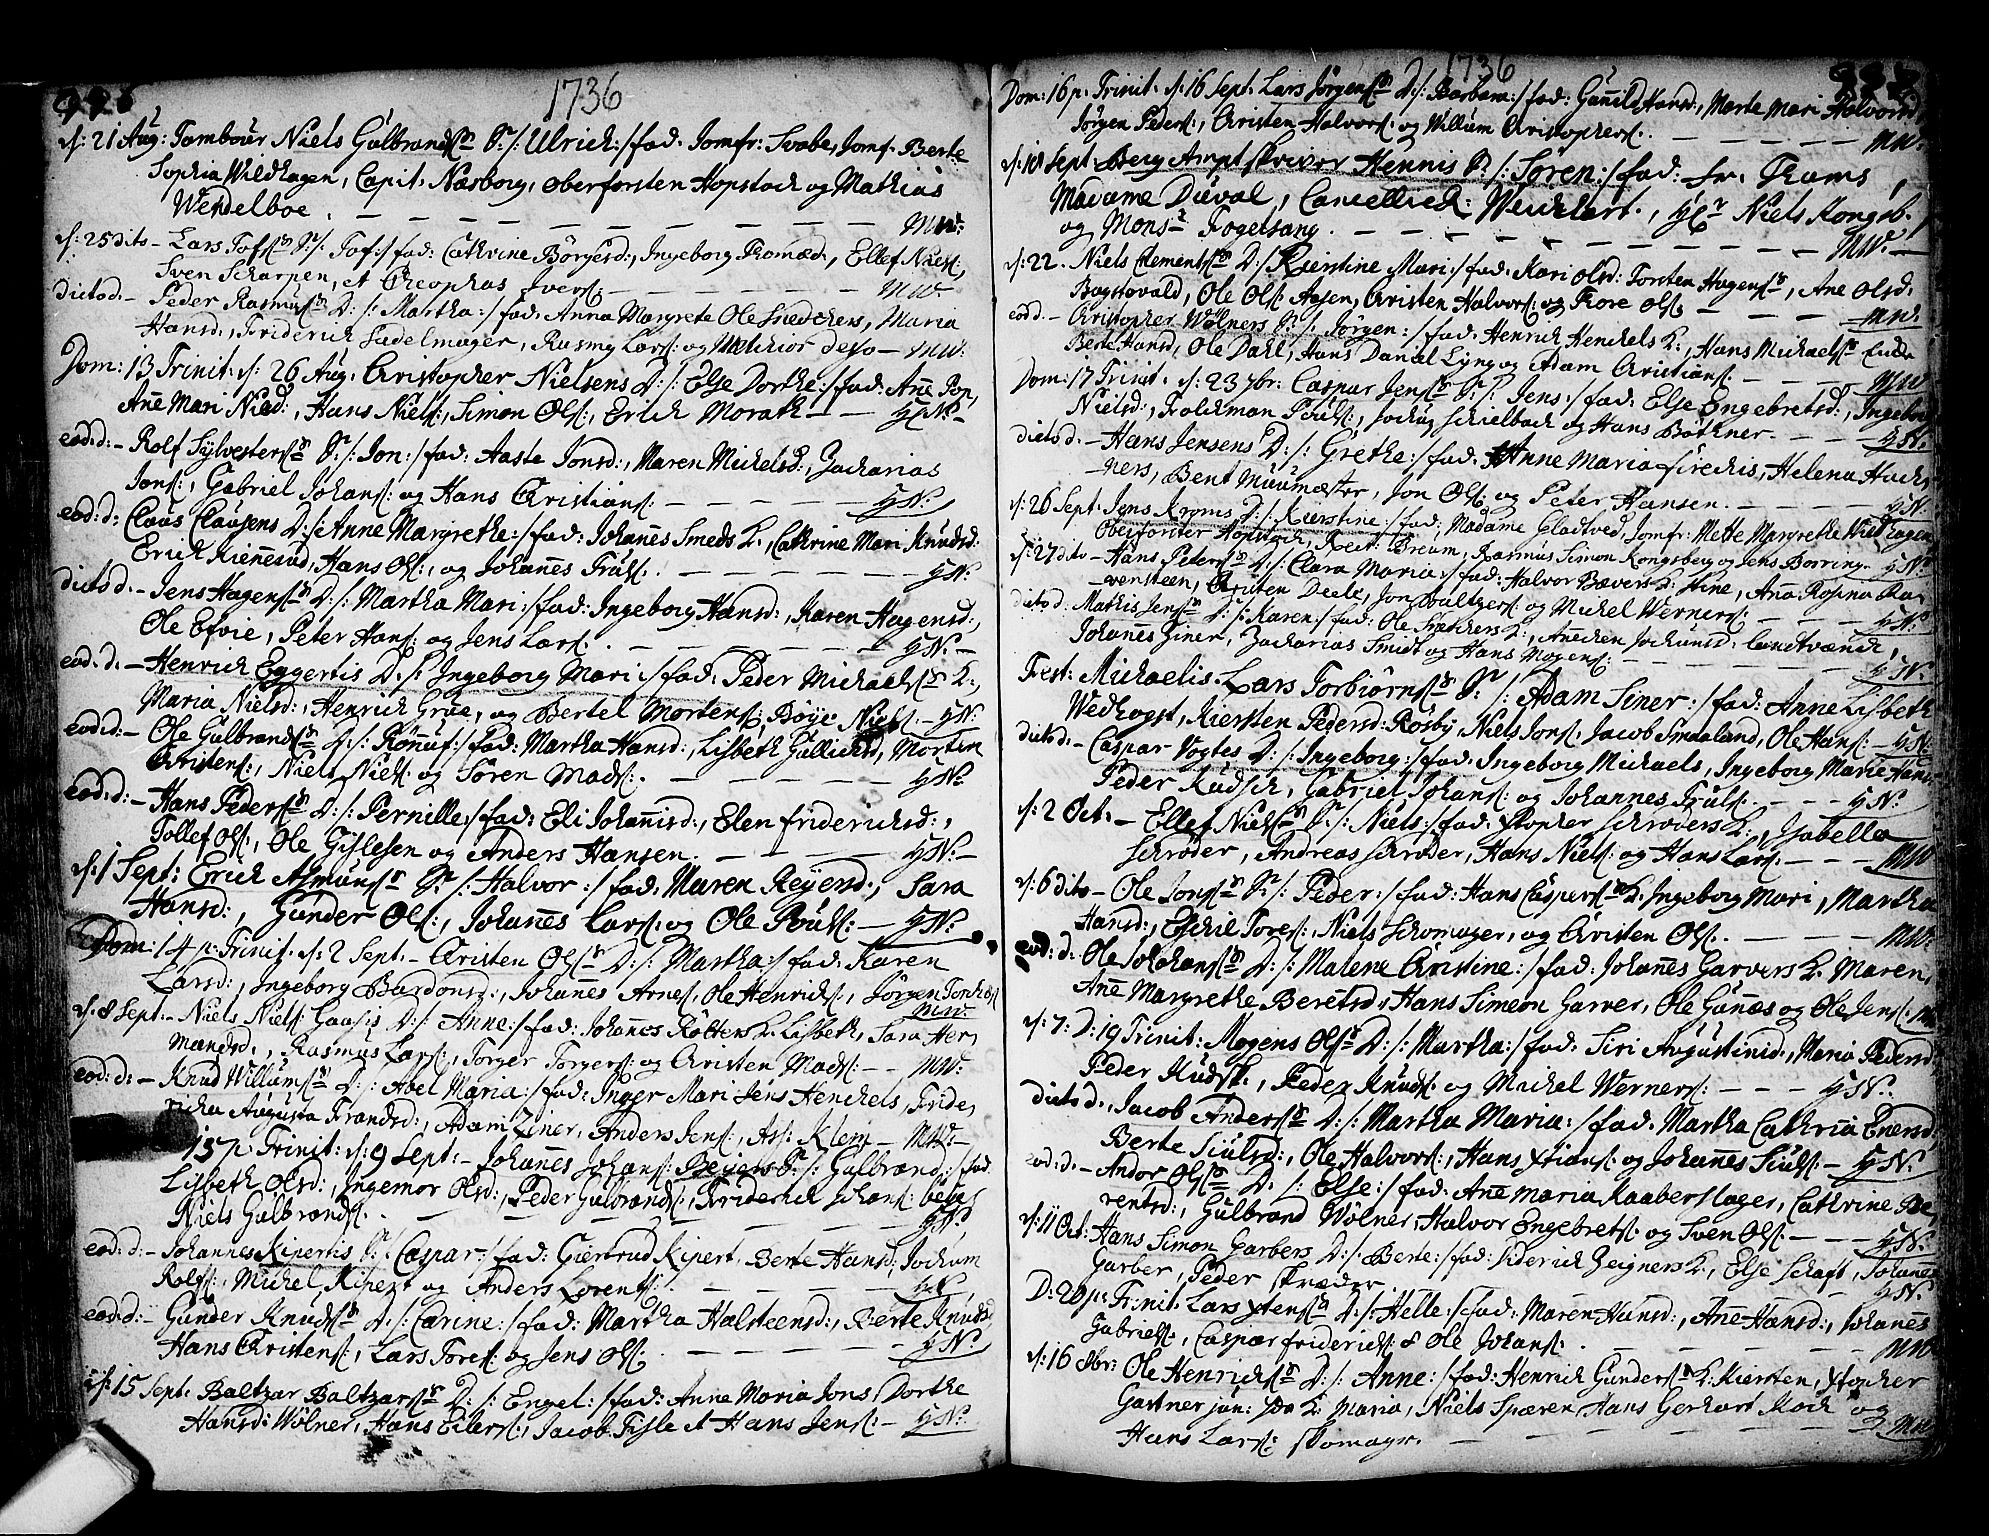 1736
d: 21 Aug: Tambour Niels Gulbrands:n S:n /: Ulrich :/ fad: Jomfr: Svabe, Jomf: Berte
Sophia Wildhagen, Capit: Næsborg, oberforsten Hopstock og Mathias
Wendelboe. MW:
d: 25 dito – Lars Tofs:n S:n /: Tof :/ fad: Cathrine Børgesd:, Ingeborg Thomæd:, Ellef Niels:,
Sven Scharpen, et Cleophas Ivers: MW.
dito d. – Peder Rasmus:n D: /: Martha :/ fad: Anna Margrete Ole Snedkers, Maria
Hansd:, Friderich Sadelmager, Rasmus Lars: og Melchior MW:
Dom: 13 Trinit: d: 26 Aug. Christopher Nielsens D: /: Else Dorthe :/ fad: Añe
Añe Mari Nield:, Hans Niels:, Simon Ols:, Erich Morath – HN.
eod: d: – Rolf Sylvesters:n S:n /: Jon :/ fad: Aaste Jonsd:, Maren Michelsd:, Zacharias
Jons:, Gabriel Johans: og Hans Christians: HN.
eod: d: Claus Clausens D: /: Anne Margrethe :/ fad: Johañes Smeds K:, Cathrine Mari Knudsd:
Erich Hans Ols:, og Johañes Truls: HN:
dito d. – Jens Hagens:n D: /: Martha Mari :/ fad: Ingeborg Hansd:, Karen Hagensd:,
Ole Efvie, Peter Hans: og Jens Lars: HN. –
eod: d. – Henrich Eggertis D: /: Ingeborg Mari :/ fad: Peder Michaels:n K:,
Maria Nielsd:, Henrich Grue, og Bertel Mortens:, Böye Niels: – HN:
eod: d: – Ole Gulbrands:n D: /: Rönnu :/ fad: Martha Hansd:, Lisbeth Gullichsd, Morten
Christens:, Niels Niels: og Sören Mads: HN:
eod: d: – Hans Peders:n D: /: Pernille :/ fad: Eli Johañisd:, Elen friderichsd:,
Tollef Ols:, Ole Gislesen og Anders Hansen. HN: –
d: 1 Sept: Erich Asmuns:n S:n /: Halvor :/ fad: Maren Reyersd:, Sara
Hansd:, Gunder Ols:, Johañes Lars: og Ole Pouls: – HN:
Dom: 14 p: Trinit. d: 2 Sept. – Christen Ols:n D: /: Martha :/ fad: Karen
Larsd:, Ingeborg Bardonsd:, Johañes Arnes, Ole Henrichs:, Jörgen
MW:
d. 8 Sept. – Niels Niels: D: /: Anne :/ fad: Johañes K: Lisbeth, Sara Her,
mandsd:, Rasmus Lars:, Torger Torgers: og Christen Mads: – – MW.
eod: d: – Knud Willums:n D: /: Abel Maria :/ fad: Inger Mari Jens Henchels, Fride,
richa Augusta Frandsd:, Adam Ziner, Anders Jens:, As: Klem – MW: –
15 p: Trinit: d: 9 Sept: – Johañes Johans: Beyers S: /: Gulbrand :/ fad:
Lisbeth Olsd:, Ingemor Olsd:, Peder Gulbrands:, Friderich Johans:
Niels Gulbrands: HN:
eod: d: – Johañes Kipertis S: /: Caspar :/ fad: Giertrud Kipert, Berte Hansd:, Jochum
Rolfs:, Michel Kipert og Anders Lorents: HN.
eod: d: – Gunder Knuds:n D: /: Carine :/ fad: Martha Halsteensd:, Berte Knudsd:
Hans Christens:, Lars Tores: og Jens Ols: HN.
d: 15 Sept. Baltzar Baltzars:n D: /: Engel :/ fad: Anne Maria Jons, Dorthe
Hansd: Wölner, Hans Eilers:, Jacob Fisle et Hans Jens: – HN:
1736
Dom: 16 p. Trinit. d: 16 Sept. Lars Jörgens:n D: /: Barbara :/ fad: Guñild Hansd:, Marte Mari Halvorsd,
Jörgen Peders:, Christen Halvors: og Willum Christophers: MW:
d: 18 Sept. Berg Ampt skriver Hennis S: /: Sören :/ fad: Fr. Thams,
Madame Duval, Cancellied: Weichart, H:r Niels Kongsb.
og Mons:r Fogelsang. MW. –
d: 22. Niels Clements:n D: /: Kierstine Mari :/ fad: Kari Olsd: Torsten Hagens:n, Ane Olsd.
Bogstovald, Ole Ols: Aasen, Christen Halvors: og Tore Ols: MW.
eod d. – Christopher Wölners S: /: Jörgen :/ fad: Henrich Henchels K:, Hans Michaels:n Enke
Berte Hansd, Ole Dahl, Hans Danal Lyng og Adam Christians: MW
Dom: 17 Trinit. d: 23 7br: Caspar Jens:n S:n /: Jens :/ fad: Else Engebretsd:, Ingeborg
Nielsd:, Folckman Pouls:, Jochug Schielbach og Hans Böthner. HN:
dito d. – Hans Jensens D: /: Grethe :/ fad: Anne Maria Helena
ners, Bent Muurmester, Jon Ols: og Peter Hansen. HN.
d: 26 Sept. Jens Kroms D: /: Kierstine :/ fad: Madame Gladtved, Jomfr: Mette Margrethe Wildhagen
Oberforster Hopstock, Bredm, Rasmus Simon Kongsberg og Jens Borring. HN:
d: 27 dito – Hans Peters:n D: /: Clara Maria :/ fad: Halvor Bævers K: Stine, Aña Rosina Ra,
vensteen, Christen Deele, Jon Baltzers: og Michel Werners:
dito d: Mathis Jens:n D: /: Karen :/ fad: Ole K:, Añeken Jochumsd: Landtvændt, HN:
Johañes Ziner, Zacharias Smidt og Hans Mogens: HN.
Fest: Michaelis. Lars Torbiörns:n S: /: Adam Siner :/ fad: Anne Lisbeth
Wedhogst, Kiersten Pedersd: Rösby, Niels Jons:, Jacob Smaaland, Ole Hans: – HN.
dito d: – Caspar Vogtes D: /: Ingeborg :/ fad: Ingeborg Michaels, Ingeborg Marie Hans
Peder Kudsch, Gabriel Johans: og Johannes Truls: HN:
d: 2 Oct: – Ellef Niels:n S: /: Niels :/ fad: Xtopher Schröders K:, Isabella
Schröder, Andreas Schröder, Hans Niels: og Hans Lars: MW
d: 6 dito – Ole Jons:n S:n /: Peder :/ fad: Hans Caspers:n K: Ingeborg Mari, Martha
Hansd:, Eschil Tores:, Niels Schomager, og Christen Ols: MW:
eod: d: Ole Johans:n D: /: Malene Christine :/ fad: Johañes Garvers K: Maren,
Añe Margrethe Beretsd:, Hans Simeon Garver, Ole Guñes og Ole Jens: MW
d: 7: D: 19 Trinit: Mogens Ols:n D: /: Martha :/ fad: Siri Augustinid:, Maria Pedersd
Peder Kudsk, Peder Knuds: og Michel Werners: HN.
dito d. Jacob Anders:n D: /: Martha Maria :/ fad: Martha Cathria Enersd,
Berte Siulsd:, Ole Halvors:, Hans Xtians: og Johañes Siuls: – HN.
eod: d: – Andor Ols:n D. /: Else :/ fad: Añe Maria Kaaberslager, Cathrine Be,
rentsd:, Gulbrand Wölner, Halvor Engebrets: og Sven Ols: HN.
d: 11 Oct: Hans Simon Garbers D: /: Berte :/ fad: Fiderich Zeigners K:, Else Schaft, Johañes
Garber, Peder Skræder HN:
D: 20 p: Trinit. Lars Xtens:n D: /: Helle :/ fad: Maren Hansd:, Añe Hansd:, Johañes
Gabriels:, Caspar friderichs: & Ole Johans: MW
d: 16 8br: Ole Henrichs:n D: /: Anne :/ fad: Henrich Gunders:n K: Kiersten, Xtopher
Gartner jun: K: Maria, Niels Spæren, Hans Gerhart Koch og
Hans Lars: Skomagr. MW